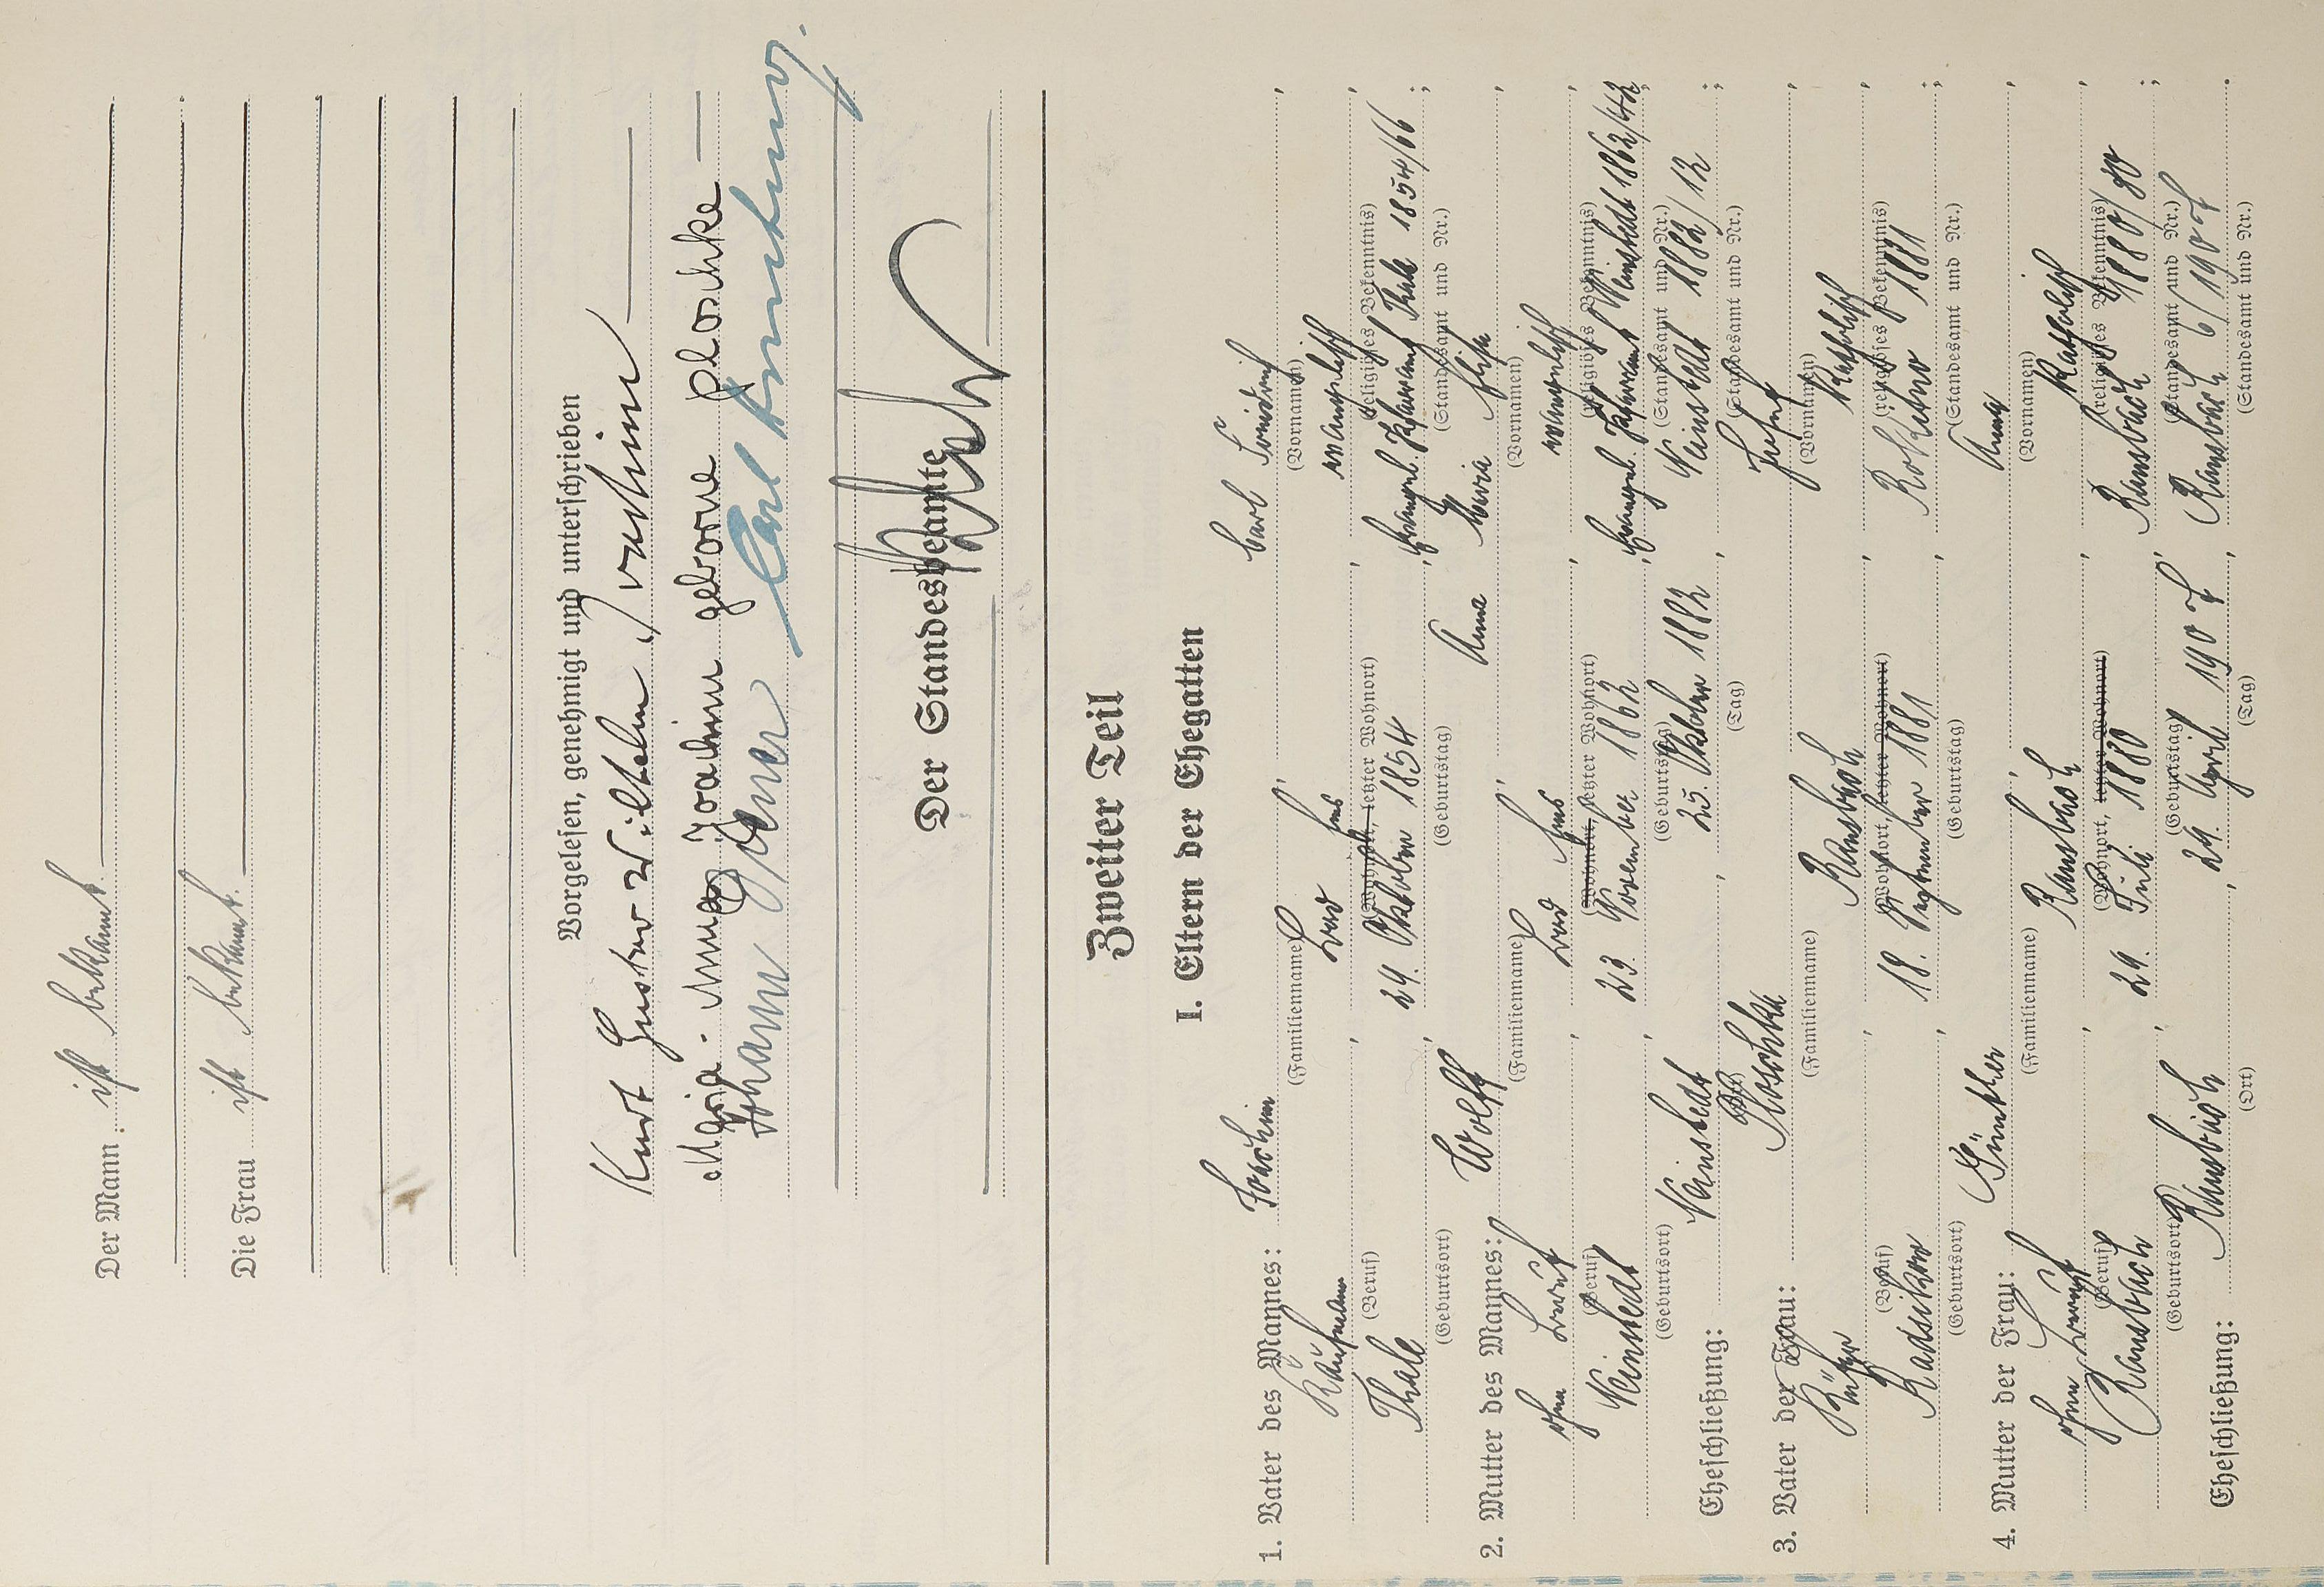 Der Mann ist bekannt.
Die Frau ist bekannt.
Vorgelesen, genehmigt und unterschrieben
Kurt Gustav Wilhelm Joachim
Maria-Anna Joachim geborne Ploschke
Johann
Carl
Der Standesbeamte
Zweiter Teil
I. Eltern der Ehegatten
1. Vater des Mannes: Joachim Carl Friedrich
(Familienname) (Vornamen)
Kaufmann Bad Ems evangelisch
(Beruf) (Wohnort, letzter Wohnort) (religiöses Bekenntnis)
Thale 24. Oktober 1854 Evangel. Pfarramt Thale 1854/66
(Geburtsort) (Geburtstag) (Standesamt und Nr.)
2. Mutter des Mannes: Wolff Anna Maria
(Familienname) (Vornamen)
ohne Beruf Bad Ems evangelisch
(Beruf) (Wohnort, letzter Wohnort) (religiöses Bekenntnis)
Neinstedt 23. November 1862 Evangel. Pfarramt Neinstedt 1862/42
(Geburtsort) (Geburtstag) (Standesamt und Nr.)
Eheschließung: Neinstedt 25. Oktober 1882 Neinstedt 1882/12
(Ort) (Tag) (Standesamt und Nr.)
3. Vater der Frau: Ploschke Josef
(Familienname) (Vornamen)
Ransbach katholisch
(Beruf) (Wohnort, letzter Wohnort) (religiöses Bekenntnis)
18. September 1881 1881
(Geburtsort) (Geburtstag) (Standesamt und Nr.)
4. Mutter der Frau: Günther Anna
(Familienname) (Vornamen)
ohne Beruf Ransbach katholisch
(Beruf) (Wohnort, letzter Wohnort) (religiöses Bekenntnis)
Ransbach 29. Juli 1880 Ransbach 1880/80
(Geburtsort) (Geburtstag) (Standesamt und Nr.)
Eheschließung: Ransbach 29. April Ransbach
(Ort) (Tag) (Standesamt und Nr.)